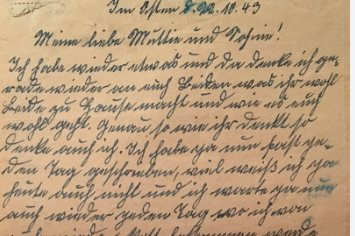 Im Osten d. 22.10.43
Meine liebe Muttie und Sohnie!
Ich habe wieder etwas und da denke ich ge-
rade wieder an euch Beiden was ihr wohl
Beide zu Hause macht und wie es euch
wohl geht. Genau so wie ihr denkt so
denke auch ich. Ich habe ja nun fast je-
den Tag geschrieben, viel weiß ich ja
heute auch nicht und ich warte ja nun
auch wieder jeden Tag wo ich von